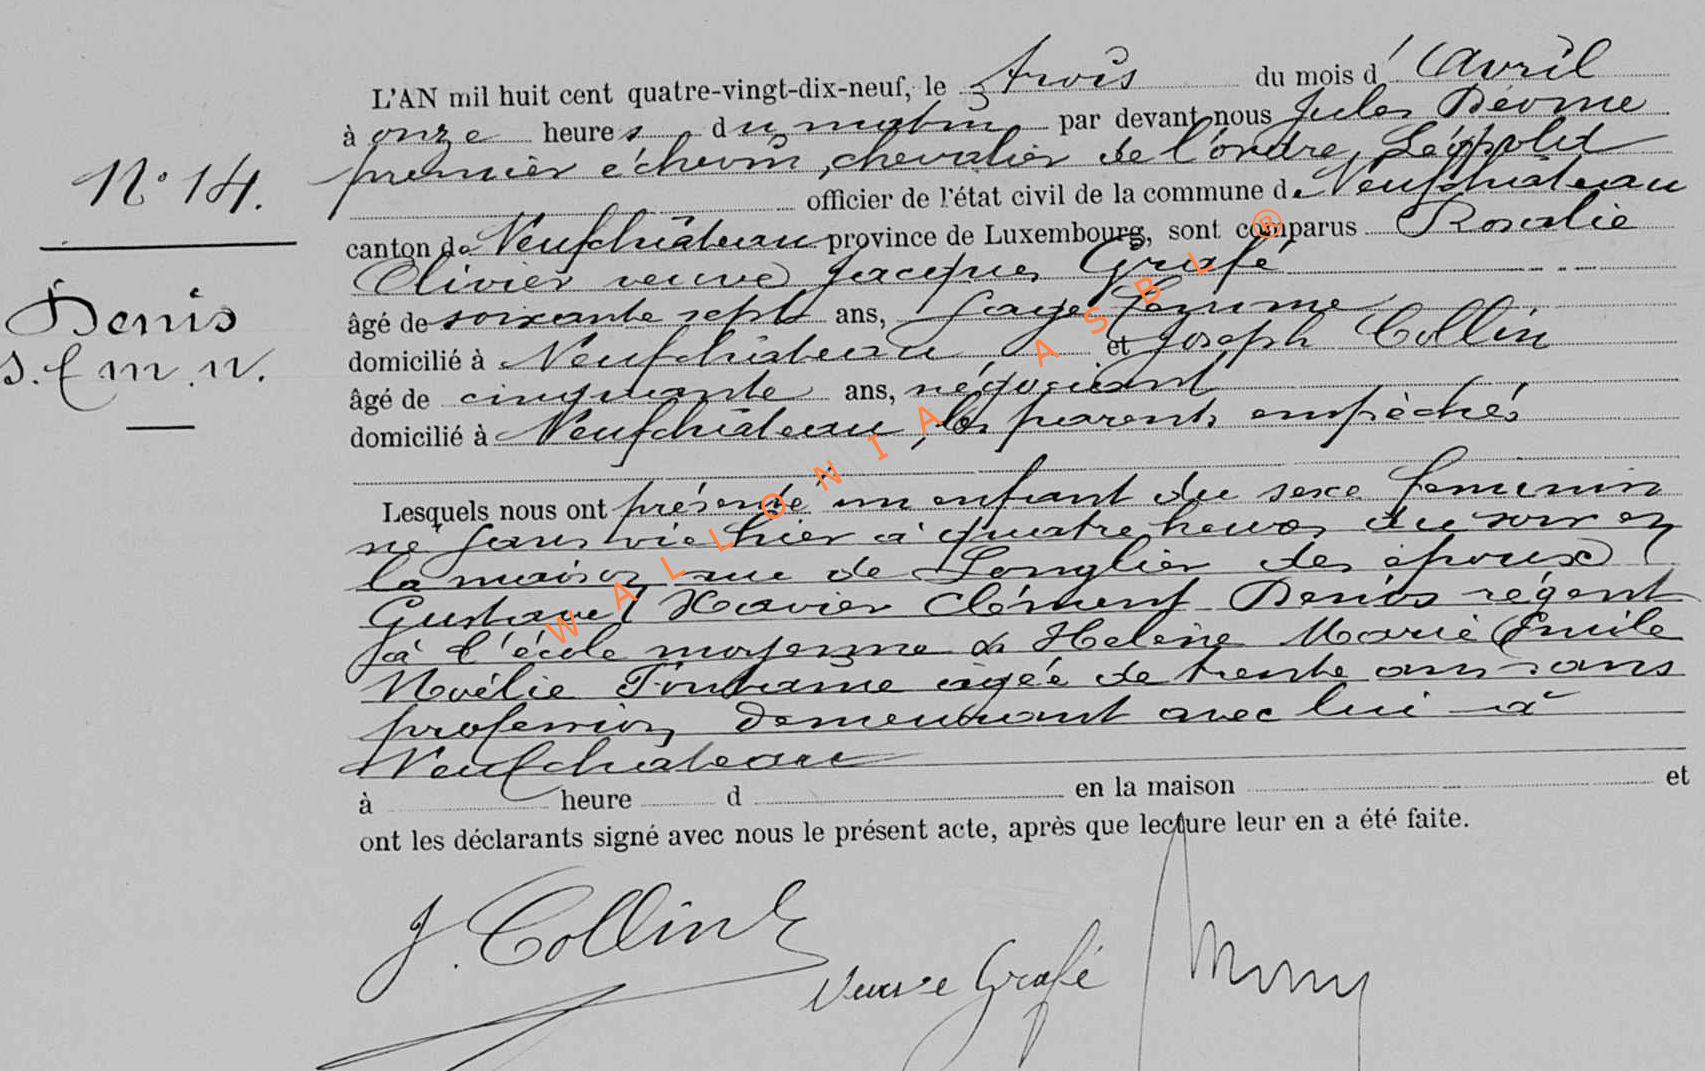 L'AN mil huit cent quatre-vingt-dix-neuf, le trois du mois d'Avril
à onze heures du matin par devant nous Jules Déome
N° 14. premier échevin, chevalier de l'ordre Léopold
officier de l'état civil de la commune de Neufchâteau
canton de Neufchâteau province de Luxembourg, sont comparus Rosalie
Olivier veuve Jacques Grafé
Denis
âgé de soixante sept ans, sage femme
domicilié à Neufchâteau et Joseph Collin
s. f m. n.
âgé de cinquante ans, négociant
domicilié à Neufchâteau, les parents empèchés
Lesquels nous ont présenté un enfant du sexe feminin
né sans vie hier à quatre heures du soir en
la maison rue de Longlier des époux
Gustave Xavier Clément Denis régent
à l'école moyenne & Helène Marie Emile
Noélie agée de trente ans sans
profession demeurant avec lui à
Neufchâteau
à heure d en la maison et
ont les déclarants signé avec nous le présent acte, après que lecture leur en a été faite.
J. Collin
Veuve Grafé
WALLONIA ASBL ®